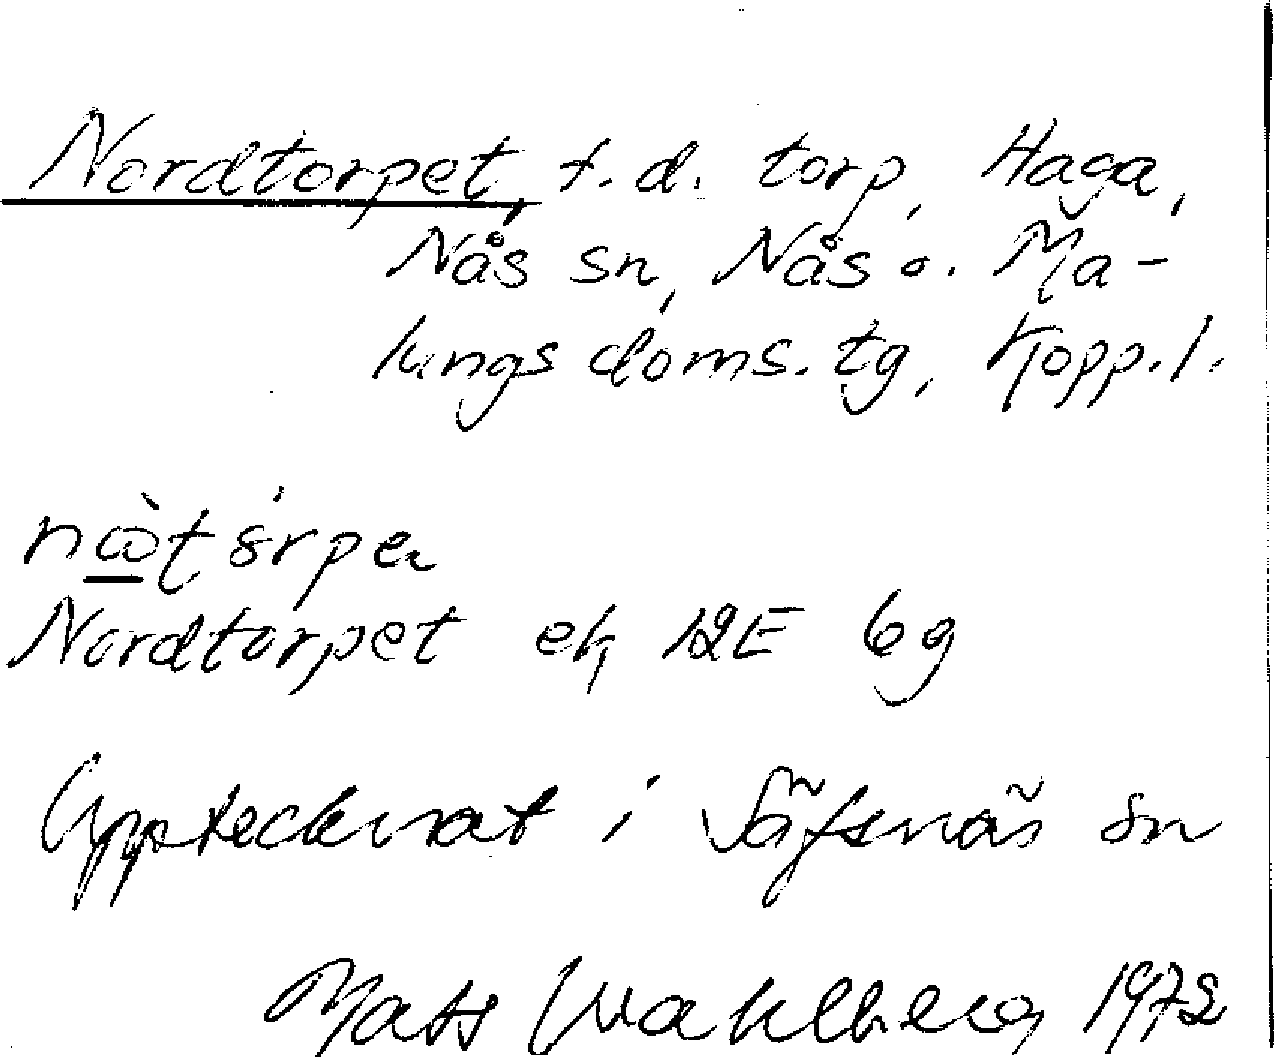 Nordtorpet, f.d. torp, Haga,
Nås sn, Nås o. Ma-
lungs doms. tg, Kopp.l.
Nordtorpet ek 12E 6g
Upptecknat i Säfsnäs sn
Mats Wahlberg 1972